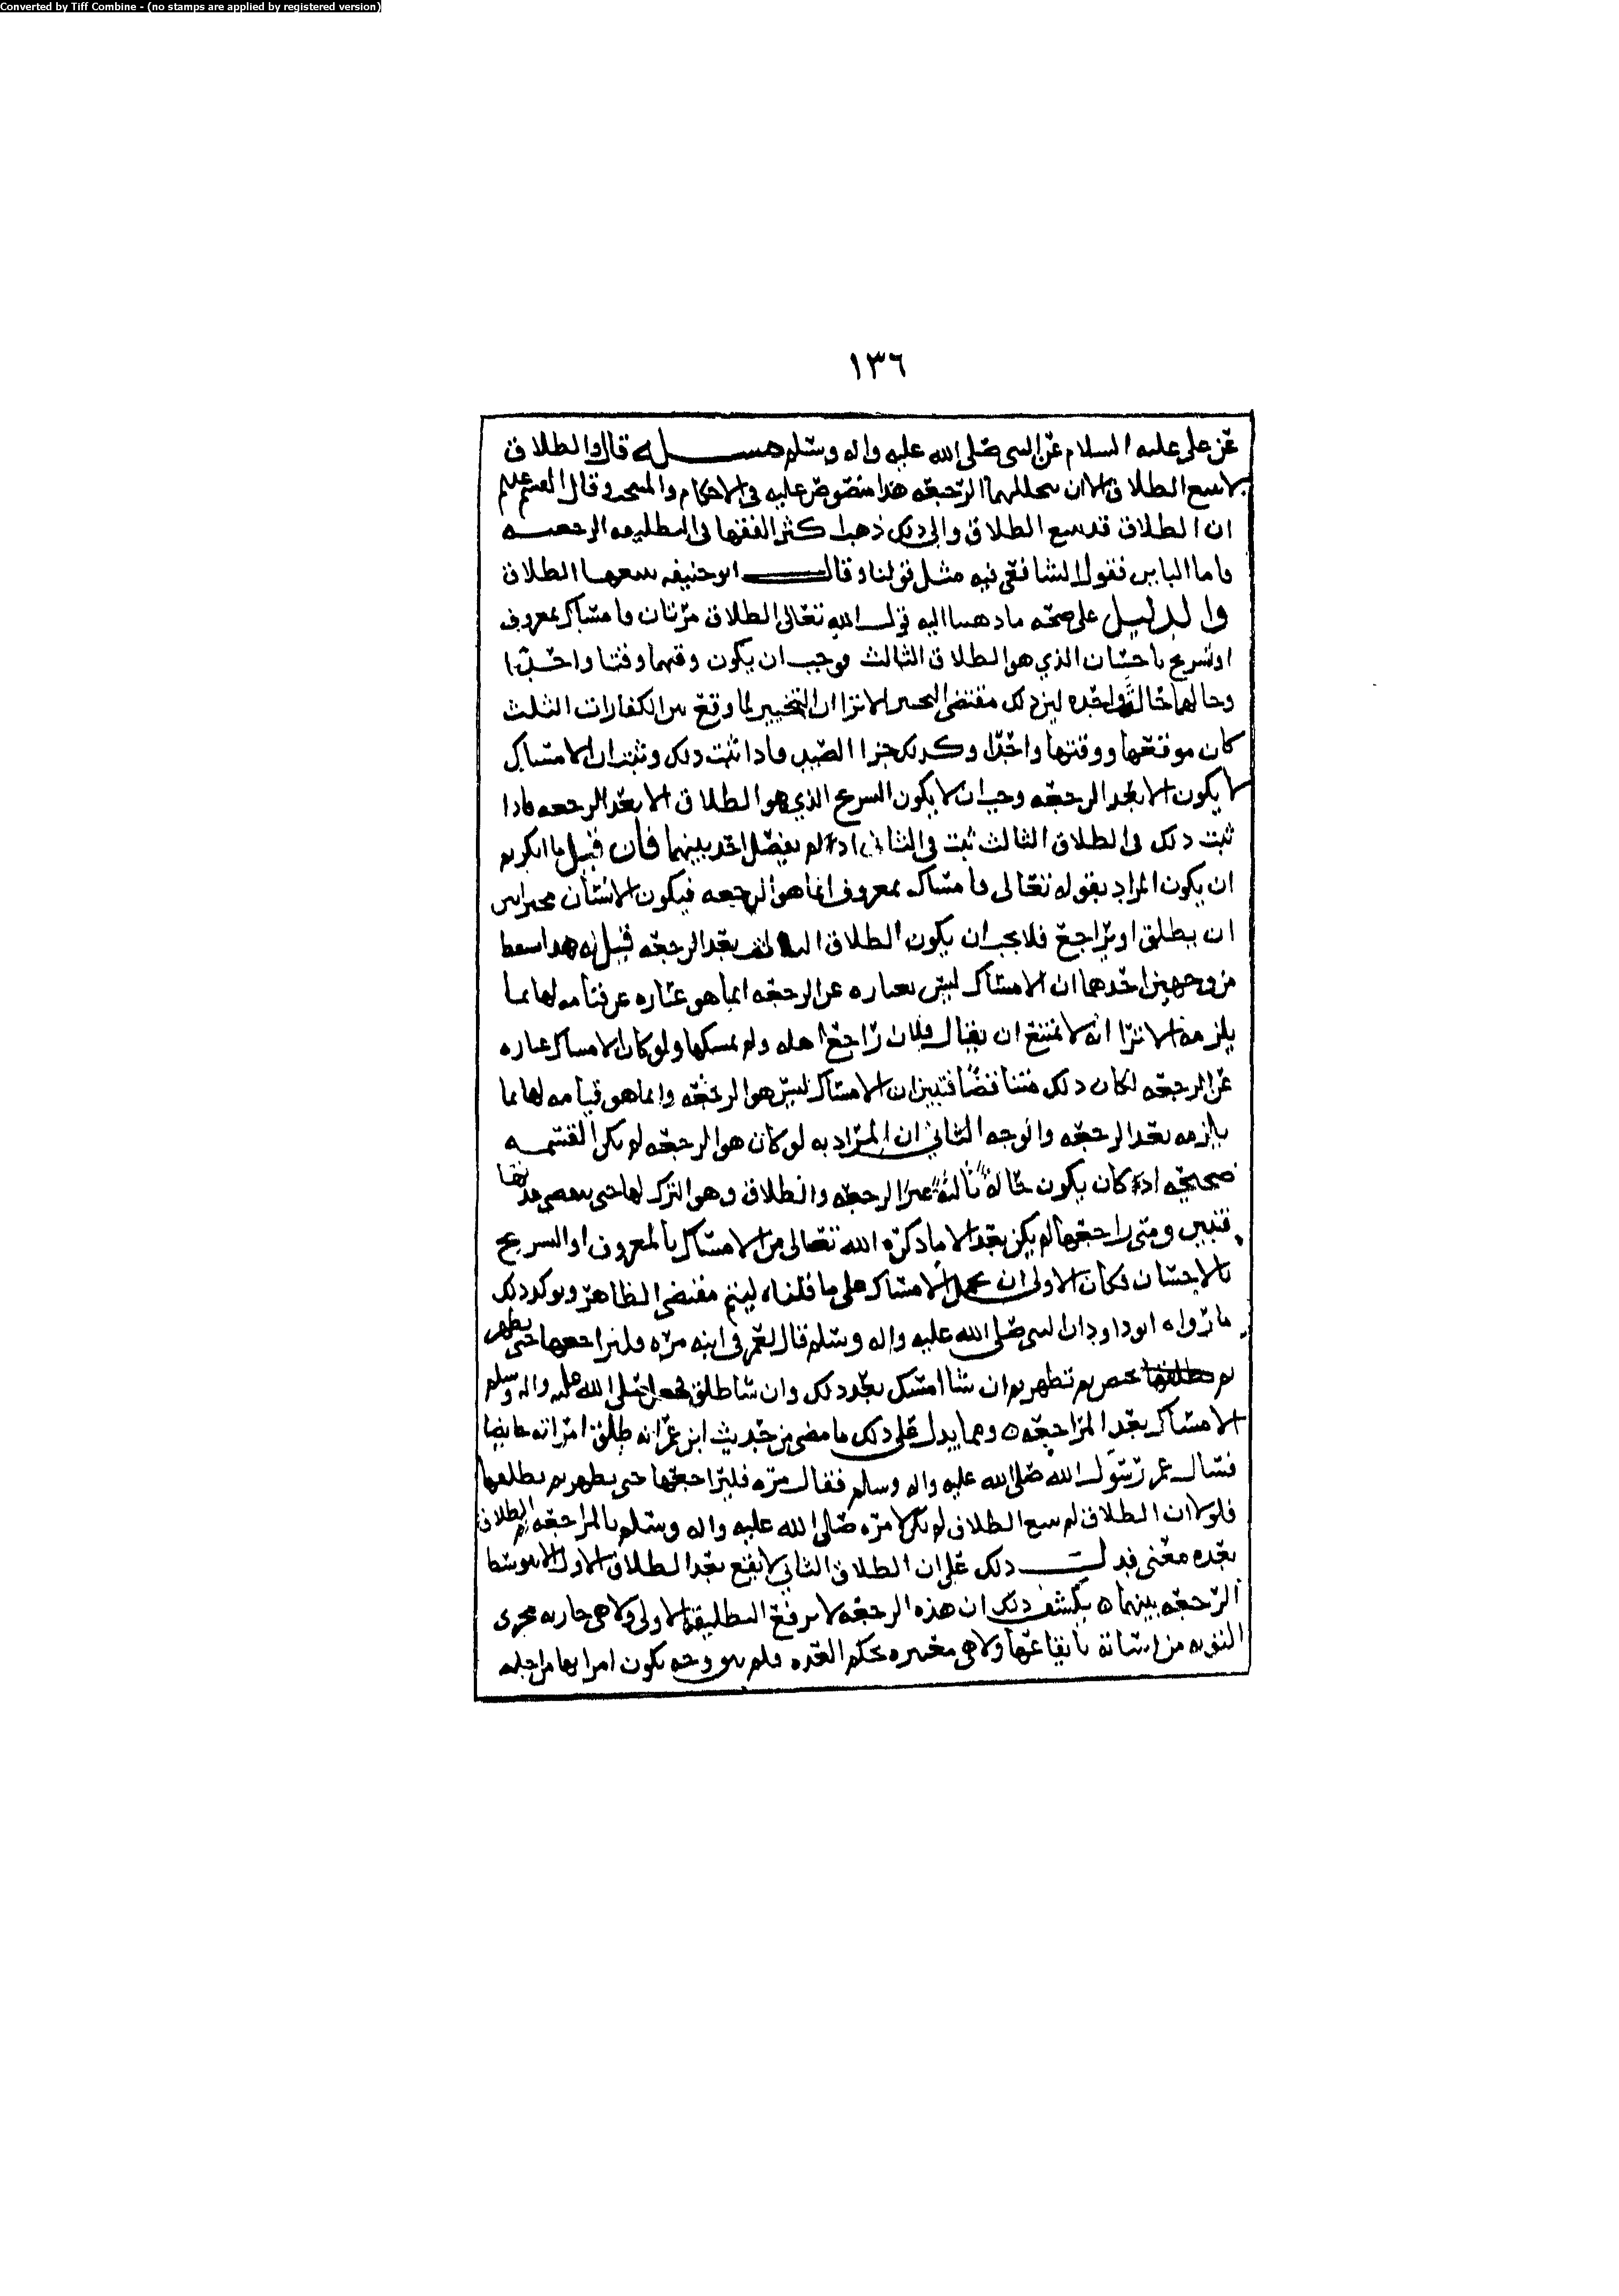 Converted by Tiff Combine - (no stamps are applied by registered version)
١٣٦
عن علي عليه السلام عن النبي صلى الله عليه واله وسلم مسله قال والطلاق
لا يتبع الطلاق الا ان يتخللهما الرجعه هذا منصوص عليه في الاحكام والمنتخب وقال القسم عليلم
ان الطلاق قد يتبع الطلاق والى ذلك ذهب اكثر الفقها في المطلقه الرجعيه
فاما الباين فقول الشافعي فيه مثل قولنا وقال ابو حنيفه يتبعها الطلاق
والدليل على صحه ما ذهبنا اليه قول الله تعالى الطلاق مرتان فامساك بمعروف
او تسريح باحسان الذي هو الطلاق الثالث فوجب ان يكون وقتهما وقتا واحدا
وحالهما حاله واحده ليزدلك مقتضى التخيير الا ترا ان التخيير لما وقع بين الكفارات الثلث
كان موقعها ووقتها واحدا وكذلك جزا الصيد فاذا ثبت ذلك وثبت ان الامساك
لا يكون الا بعد الرجعه وجب ان لا يكون التسريح الذي هو الطلاق الا بعد الرجعه فاذا
ثبت ذلك في الطلاق الثالث ثبت في الثاني اذ لم يفصل احد بينهما فان قيل ما انكرتم
ان يكون المراد بقوله تعالى فامساك بمعروف انما هو الرجعه فيكون الانسان مخيرا بين
ان يطلق او يراجع فلا يجب ان يكون الطلاق الثالث بعد الرجعه قيل له هذا يسقط
من وجهين احدهما ان الامساك ليس بعباره عن الرجعه انما هو عباره عن قيامه لها بما
يلزمه الا ترا انه لا يمتنع ان يقال فلان راجع اهله ولم يمسكها ولو كان الامساك عباره
عن الرجعه لكان ذلك متناقضا فتبين ان الامساك ليس هو الرجعه وانما هو قيامه لها بما
يلزمه بعد الرجعه والوجه الثاني ان المراد به لو كان هو الرجعه لم تكن القسمه
صحيحه اذ كان يكون حاله ثالثه غير الرجعه والطلاق وهو الترك لها حتى تنقضي عدتها
فتبين ومتى راجعها لم يكن بعد الا ما ذكره الله تعالى من الامساك بالمعروف او التسريح
بالاحسان فكان الاولى ان يحمل الامساك على ما قلناه ليتم مقتضى الظاهر ويوكد ذلك
ما رواه ابو داود ان النبي صلى الله عليه واله وسلم قال لعمر في ابنه مره فليراجعها حتى يطهر
ثم تحيض ثم تطهر ثم ان شا امسك بعد ذلك وان شا طلق فجعل صلى الله عليه واله وسلم
الامساك بعد المراجعه ومما يدل على ذلك ما مضى من حديث ابن عمر انه طلق امراته حايضا
فسال عمر رسول الله صلى الله عليه واله وسلم فقال مره فليراجعها حتى يطهر ثم يطلقها
فلولا ان الطلاق لم يتبع الطلاق لم يكن لامره صلى الله عليه واله وسلم بالمراجعه ثم الطلاق
بعده معنى فدل ذلك على ان الطلاق الثاني لا يقع بعد الطلاق الاول الا بتوسط
الرجعه بينهما يكشف ذلك ان هذه الرجعه لا ترفع التطليقه الاولى ولا هي جاريه مجرى
التوبه من اساته بايقاعها ولا هي مغيره بحكم العده فلم يبق وجه يكون امرا بها من اجله